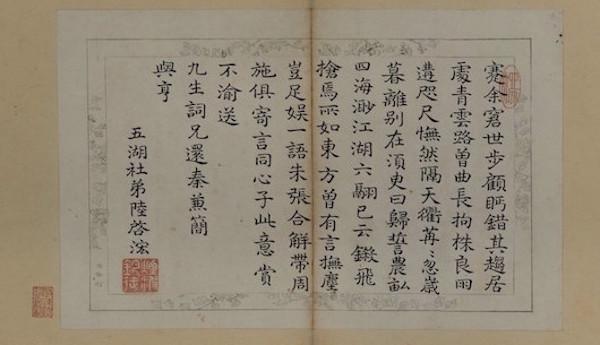 蹇余窘世步顧眄錯其趨居
處青雲路曾曲長拘株良雨
遘咫尺憮然隔天衢苒〻忽歲
暮離別在須臾曰歸誓農畝
四海渺江湖六翮已云鎩飛
搶焉所如東方曾有言撫塵
豈足娛一語朱張合解帶周
施俱寄言同心子此意賞
不渝送
九生詞兄還秦兼簡
與亨
五湖社弟陸啓浤